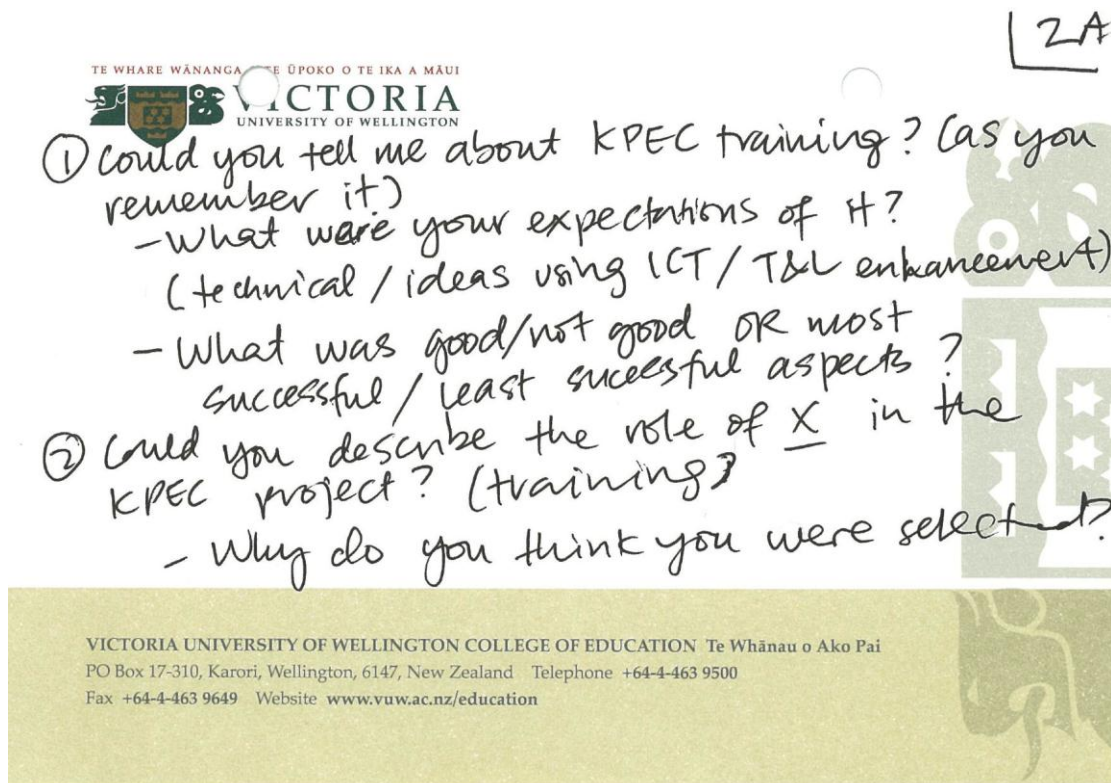 2A
TE WHARE WĀNANGA TE ŪPOKO O TE IKA A MĀUI
VICTORIA
UNIVERSITY OF WELLINGTON
① Could you tell me about KPEC training? (as you
remember it)
- What were your expectations of it?
(technical / ideas using ICT / T&L enhancement)
- What was good/not good OR most
successful / least sucessful aspects?
② Could you describe the role of X in the
KPEC project? (training)
- Why do you think you were selected?
VICTORIA UNIVERSITY OF WELLINGTON COLLEGE OF EDUCATION Te Whānau o Ako Pai
PO Box 17-310, Karori, Wellington, 6147, New Zealand Telephone +64-4-463 9500
Fax +64-4-463 9649 Website www.vuw.ac.nz/education